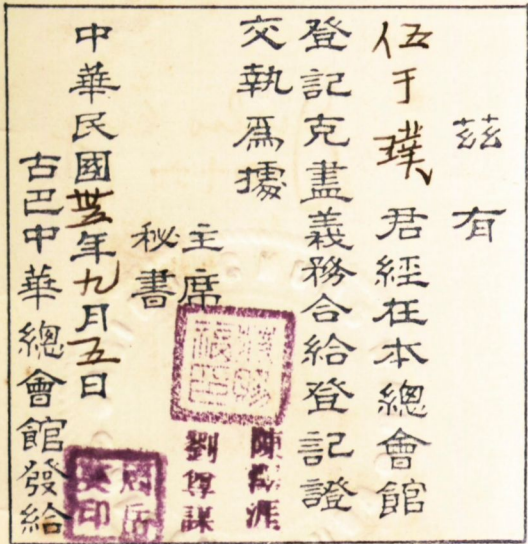 茲有
伍于璞君經在本總會館
登記克盡義務合給登記證
交執爲據
主席
秘書
劉尊謀
中華民國卅五年九月五日
古巴中華總會館發給